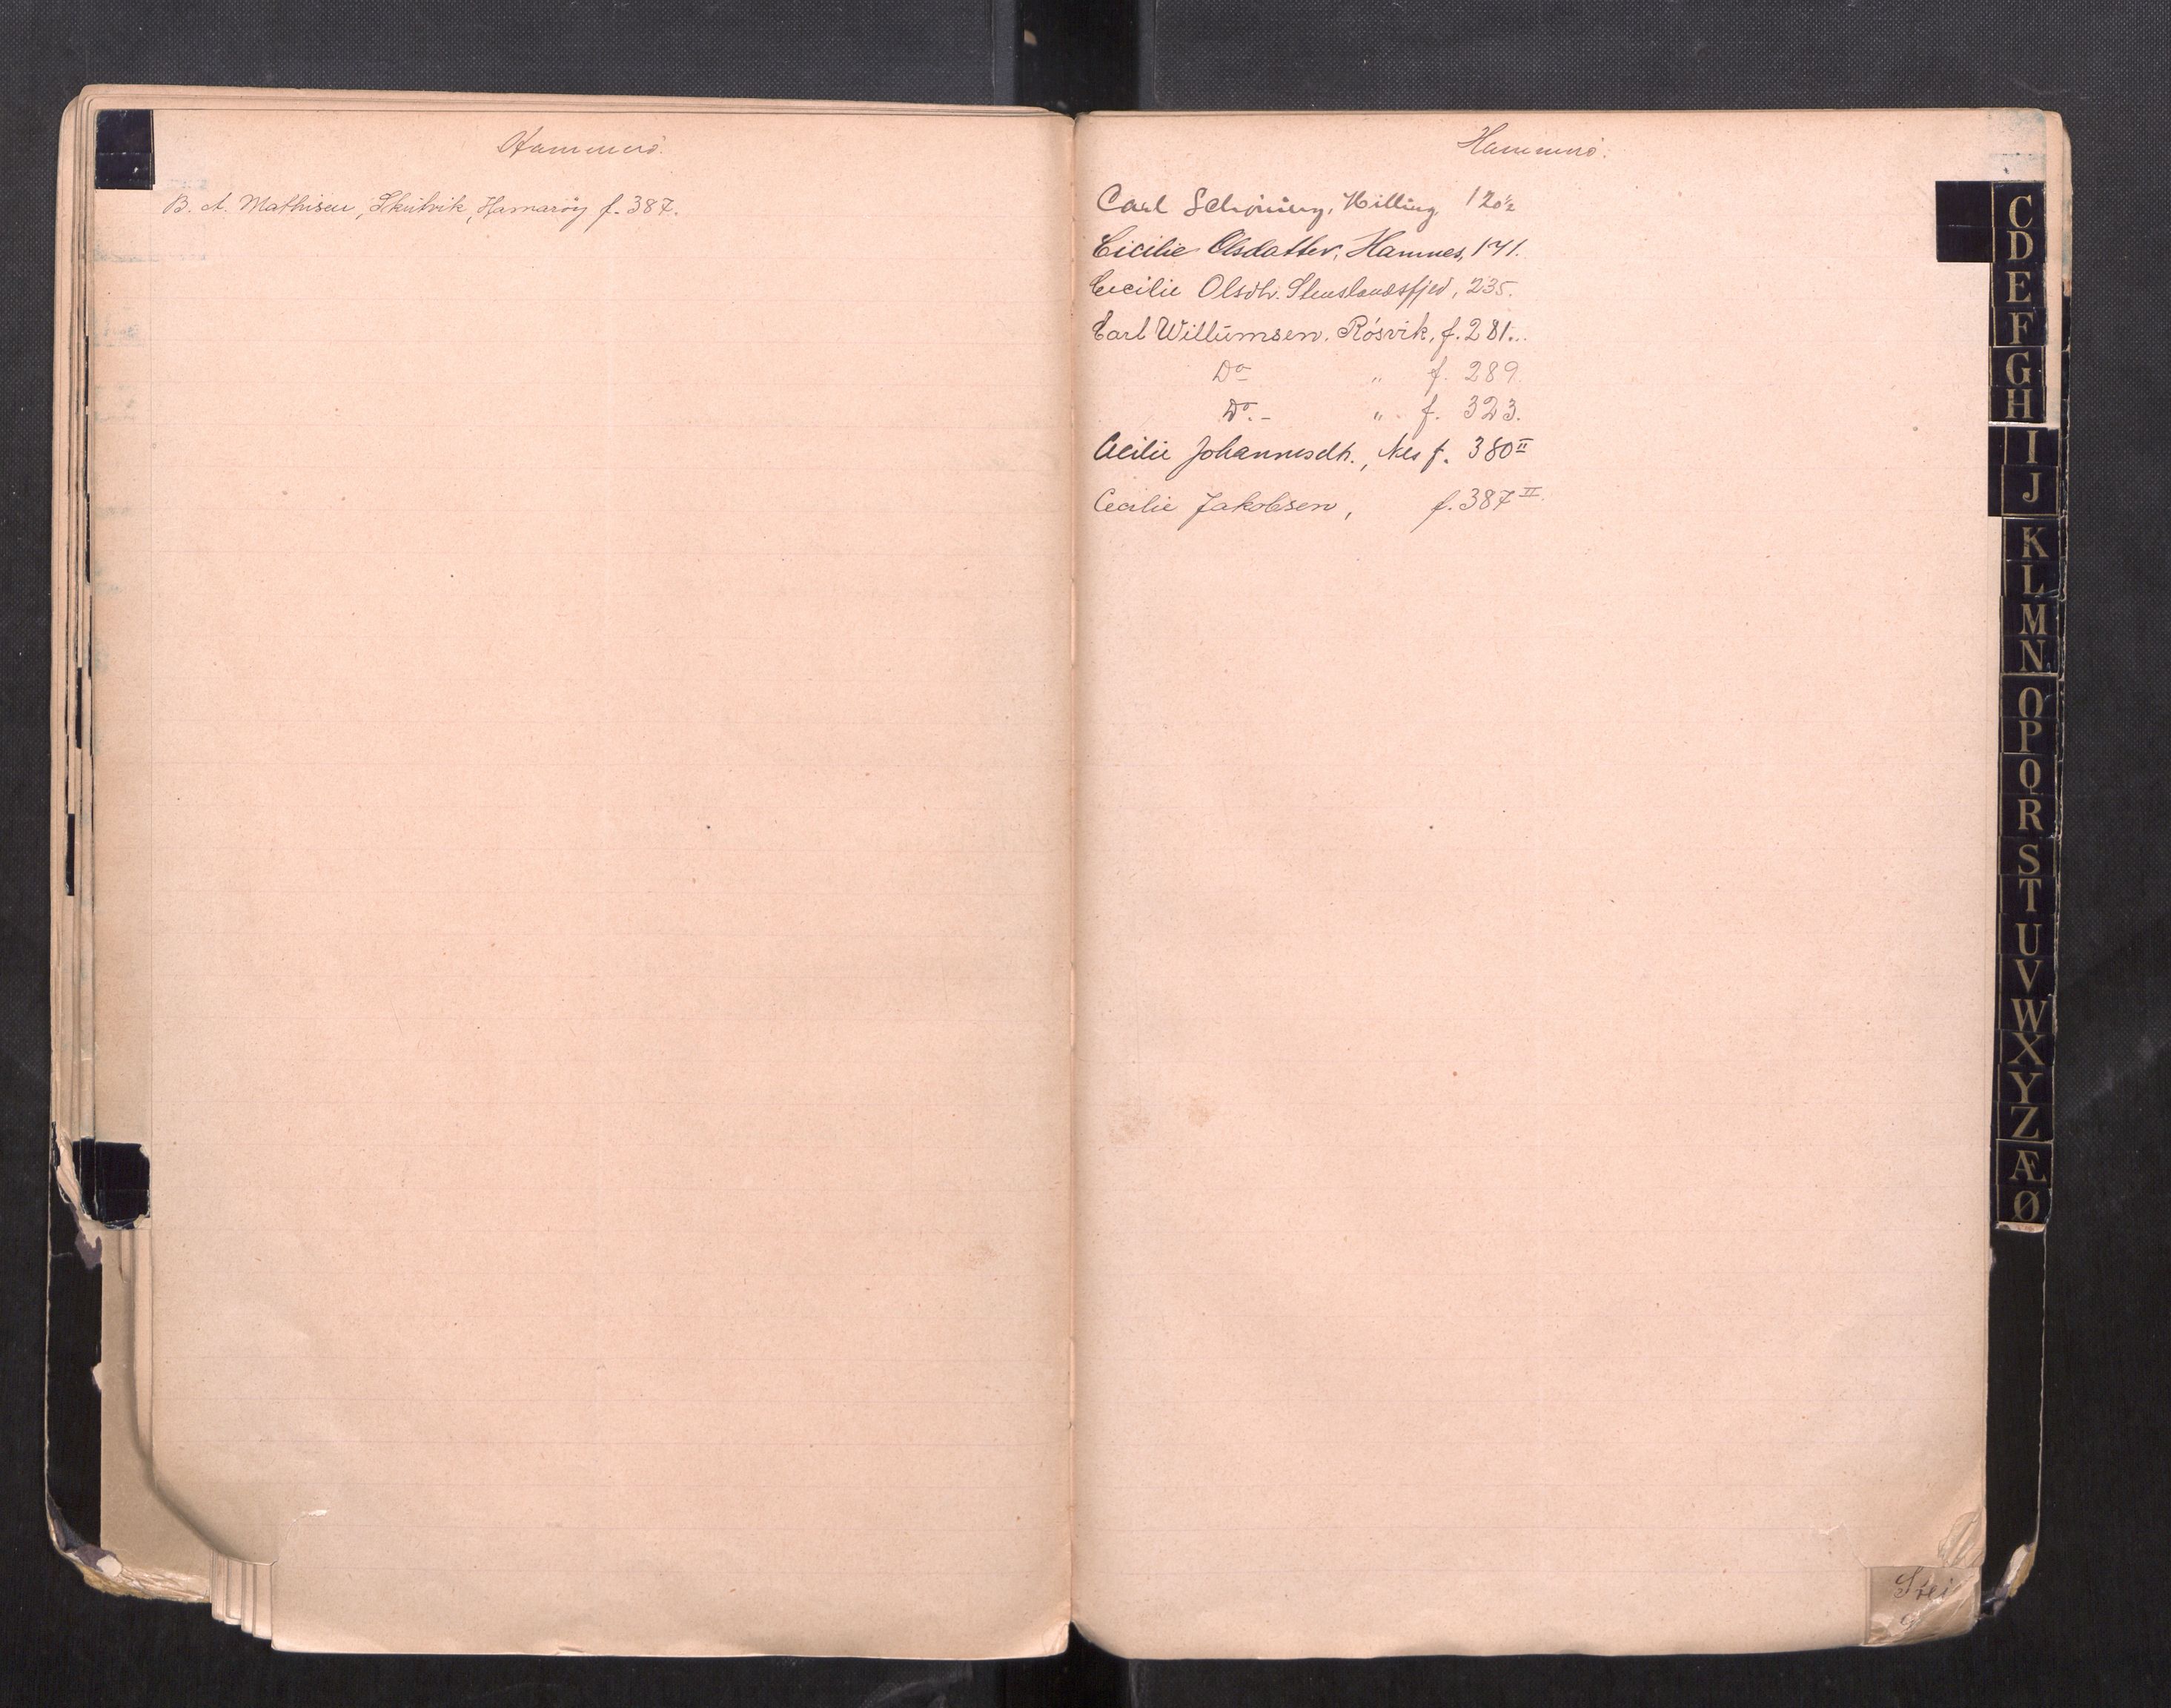 Hammerø.
B. A. Mathisen, Skutvik, Hamarøy f. 387.
Hammerø.
Carl Schjöning, Killing 120½
Cicilie Olsdatter, Hamnes, 171.
Cecilie Olsdtr. Stenslandsfjed, 235.
Carl Willumsen. Røsvik, f. 281...
Do " f. 289.
Do.- " f. 323.
Cecilie Johannesdtr., Nes f. 380 II
Cecilie Jakobsen, f. 387 II.
C
D
E
F
G
H
I
J
K
L
M
N
O
P
Q
R
S
T
U
V
W
X
Y
Z
Æ
Ø